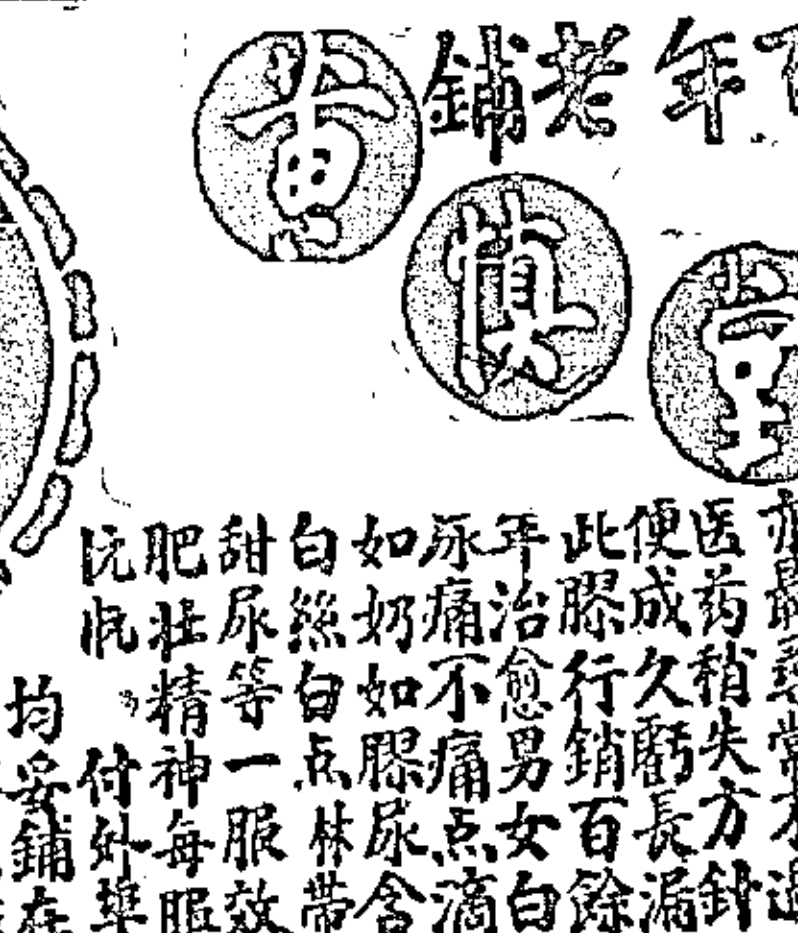 年老鋪
黄
慎
堂
医药稍失方針
便成久虧長漏
此膠行銷百餘
年治愈男女白
尿痛不痛点滴
如奶如膠尿含
白絲白点林帶
甜尿等一服效
肥壯精神每服
付外埠
均妥鋪在